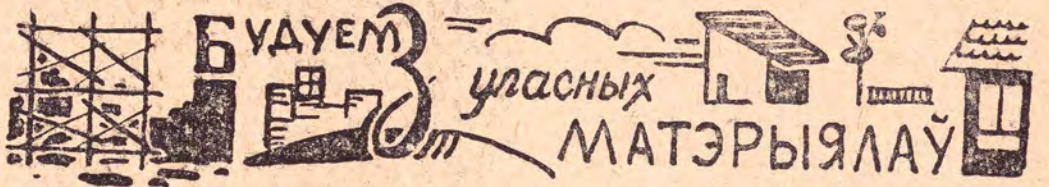 БУДУЕМ З уласных
МАТЭРЫЯЛАЎ